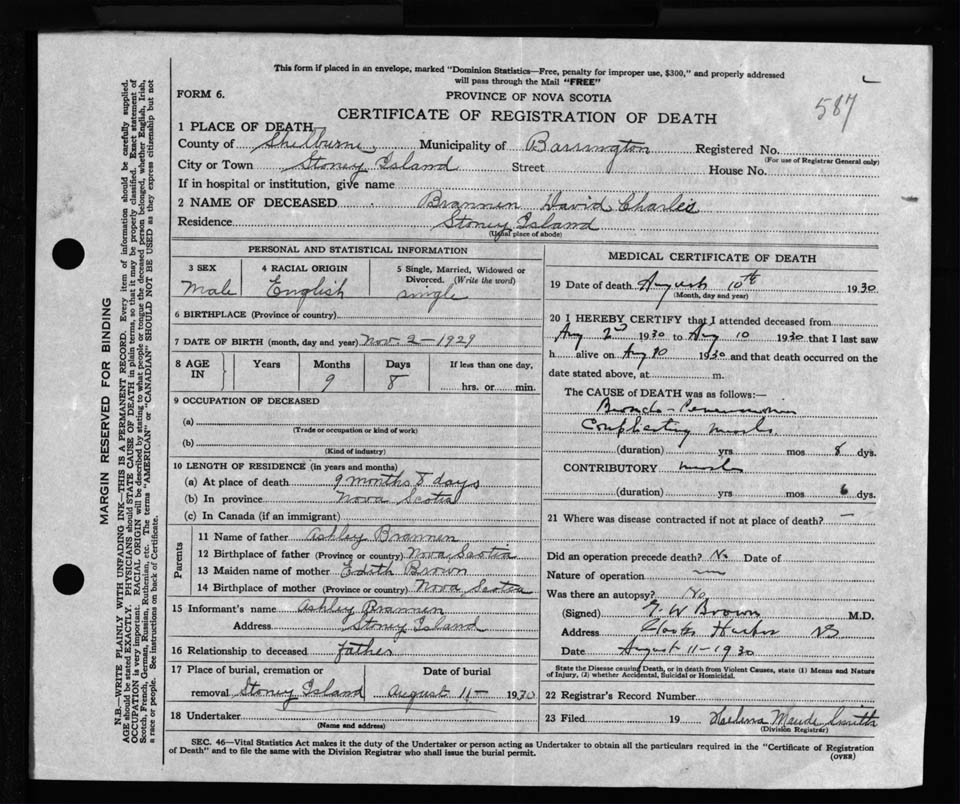 This form if placed in an envelope, marked "Dominion Statistics—Free, penalty for improper use, $300," and properly addressed
will pass through the Mail "FREE"
FORM 6.
PROVINCE OF NOVA SCOTIA
587
CERTIFICATE OF REGISTRATION OF DEATH
1 PLACE OF DEATH
County of Shelburne Municipality of Barrington Registered No.
(For use of Registrar General only)
City or Town Stoney Island Street House No.
If in hospital or institution, give name
2 NAME OF DECEASED Brannen David Charles
Residence Stoney Island
(Usual place of abode)
PERSONAL AND STATISTICAL INFORMATION
3 SEX 4 RACIAL ORIGIN 5 Single, Married, Widowed or
Divorced. (Write the word)
Male English single
6 BIRTHPLACE (Province or country)
7 DATE OF BIRTH (month, day and year) Nov 2 - 1929
8 AGE IN Years Months Days If less than one day,
9 8 hrs. or min.
9 OCCUPATION OF DECEASED
(a)
(Trade or occupation or kind of work)
(b)
(Kind of industry)
10 LENGTH OF RESIDENCE (in years and months)
(a) At place of death 9 months 8 days
(b) In province Nova Scotia
(c) In Canada (if an immigrant)
Parents
11 Name of father Ashley Brannen
12 Birthplace of father (Province or country) Nova Scotia
13 Maiden name of mother Edith Brown
14 Birthplace of mother (Province or country) Nova Scotia
15 Informant's name Ashley Brannen
Address Stoney Island
16 Relationship to deceased father
17 Place of burial, cremation or Date of burial
removal Stoney Island August 11 - 1930
18 Undertaker
(Name and address)
MEDICAL CERTIFICATE OF DEATH
19 Date of death August 10th 1930
(Month, day and year)
20 I HEREBY CERTIFY that I attended deceased from
Aug 2nd 1930 to Aug 10 1930 that I last saw
h alive on Aug 10 1930 and that death occurred on the
date stated above, at m.
The CAUSE of DEATH was as follows:—
Broncho-Pneumonia
Complicating
(duration) yrs mos 8 dys.
CONTRIBUTORY
(duration) yrs mos 6 dys.
21 Where was disease contracted if not at place of death? —
Did an operation precede death? No Date of
Nature of operation
Was there an autopsy? No
(Signed) Brown M.D.
Address Clarks Harbor NS
Date August 11 - 1930
State the Disease causing Death, or in death from Violent Causes, state (1) Means and Nature
of Injury, (2) whether Accidental, Suicidal or Homicidal.
22 Registrar's Record Number
23 Filed 19 Maude Smith
(Division Registrar)
SEC. 46—Vital Statistics Act makes it the duty of the Undertaker or person acting as Undertaker to obtain all the particulars required in the "Certificate of Registration
of Death" and to file the same with the Division Registrar who shall issue the burial permit.
(OVER)
MARGIN RESERVED FOR BINDING
N.B.—WRITE PLAINLY WITH UNFADING INK—THIS IS A PERMANENT RECORD. Every item of information should be carefully supplied.
AGE should be stated EXACTLY. PHYSICIANS should STATE CAUSE OF DEATH in plain terms, so that it may be properly classified. Exact statement of
OCCUPATION is very important. RACIAL ORIGIN will be described by stating to what people or tongue the deceased person belonged, whether English, Irish,
Scotch, French, German, Russian, Ruthenian, etc. The terms "AMERICAN" or "CANADIAN" SHOULD NOT BE USED as they express citizenship but not
a race or people. See instructions on back of Certificate.